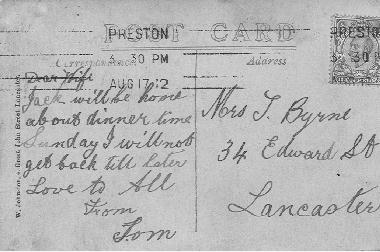 POST CARD
PRESTON
30 PM
AUG 17 12
PRESTON
30
Address
Dear Wife
Jack will be home
about dinner time
Sunday I will not
get back till later
Love to All
From
Tom
Mrs T. Byrne
34 Edward St
Lancaster